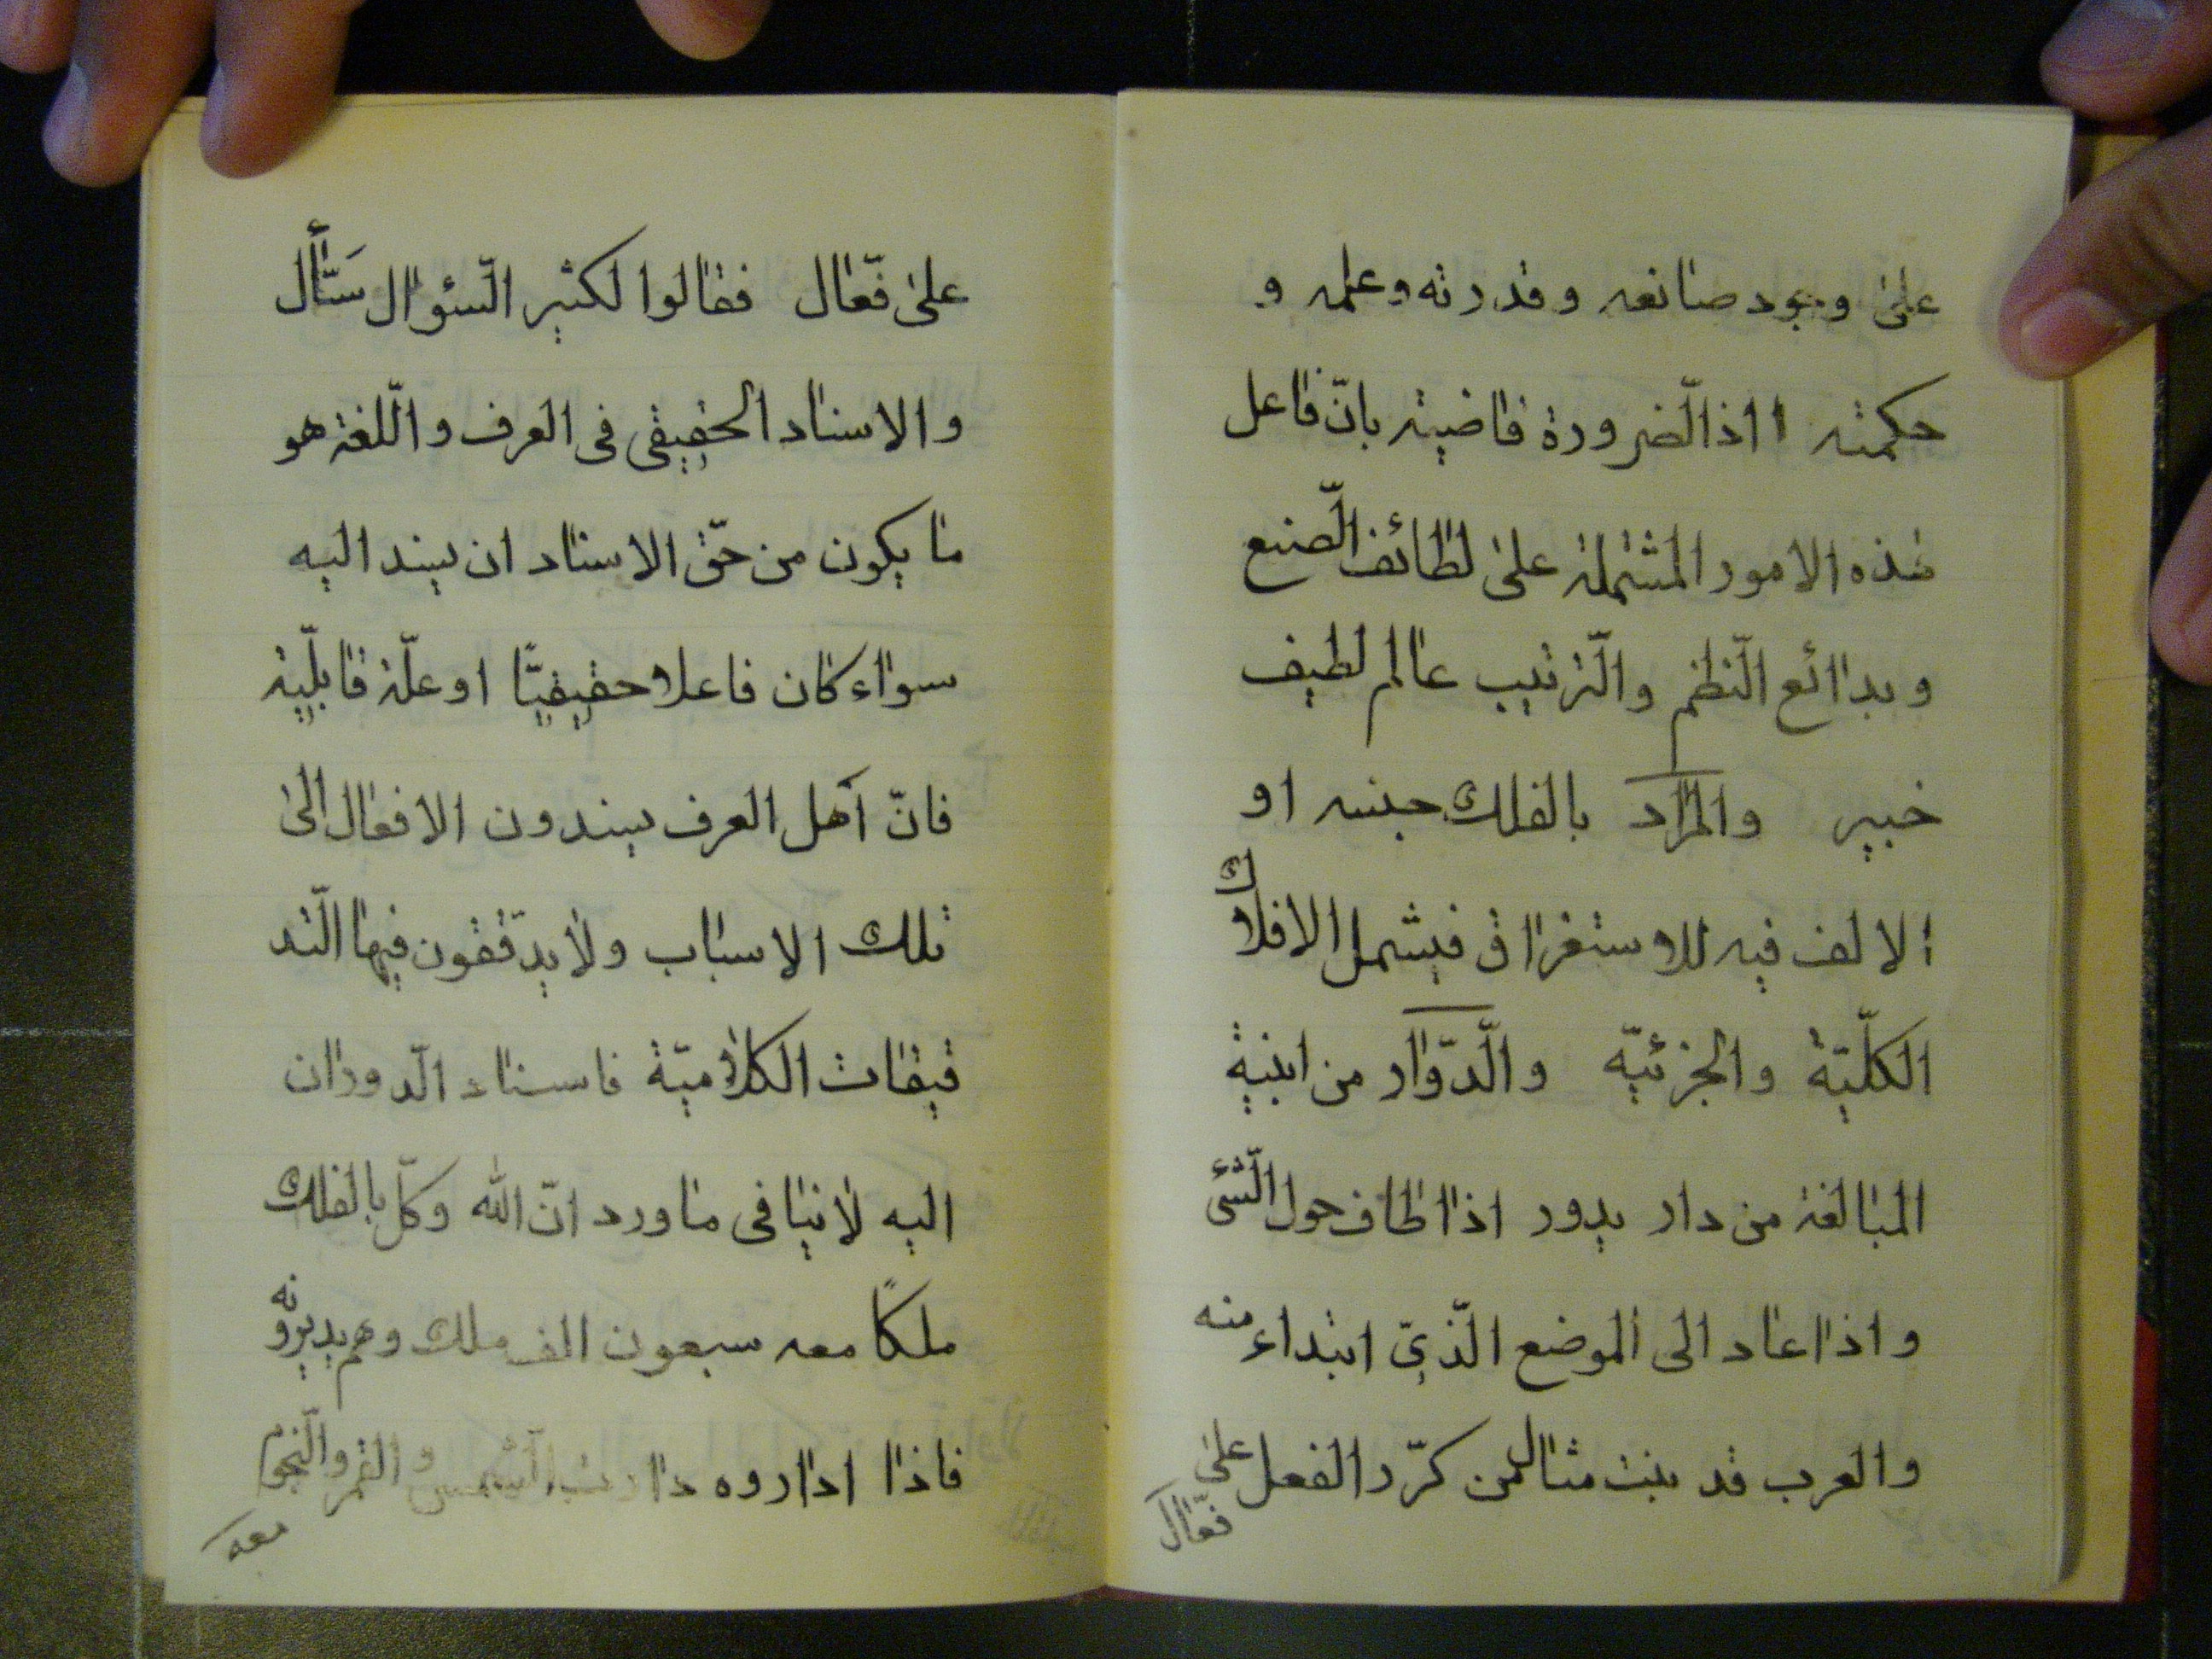 علیٰ وجود صانعه وقدرته وعلمه و
حکمته اذ الّضرورة قاضیة بانّ فاعل
هذه الامور المشتملة علیٰ لطائف الّصنع
وبدائع الّنظم والّترتیب عالم لطیف
خبیر والمراد بالفلك جنسه او
الالف فیه للاستغراق فیشمل الافلاك
الکلّیّة والجزئیّه والّدوّار من ابنیة
المبالغة من دار یدور اذا طاف حول الّشئ
واذا عاد الی الموضع الّذی ابتداء منه
والعرب قد بنت مثال لمن کرّر الفعل علیٰ
فعّال
علیٰ فعّال فقالوا لکثیر الّسئوال سَئّأل
والاسناد الحقیقی فی العرف والّلغة هو
ما یکون من حقّ الاسناد ان یسند الیه
سواء کان فاعلا حقیقیًّا او علّة قابلیّة
فانّ اهل العرف یسندون الافعال الیٰ
تلك الاسباب ولا یدقّقون فیها الّتد
قیقات الکلامیّة فاسناد الّدوران
الیه لا ینافی ما ورد انّ الله وکّل بالفلك
ملکًا معه سبعون الف ملك وهم یدیرونه
فاذا اداروه دارت الّشمس و القمر والّنجوم
معه